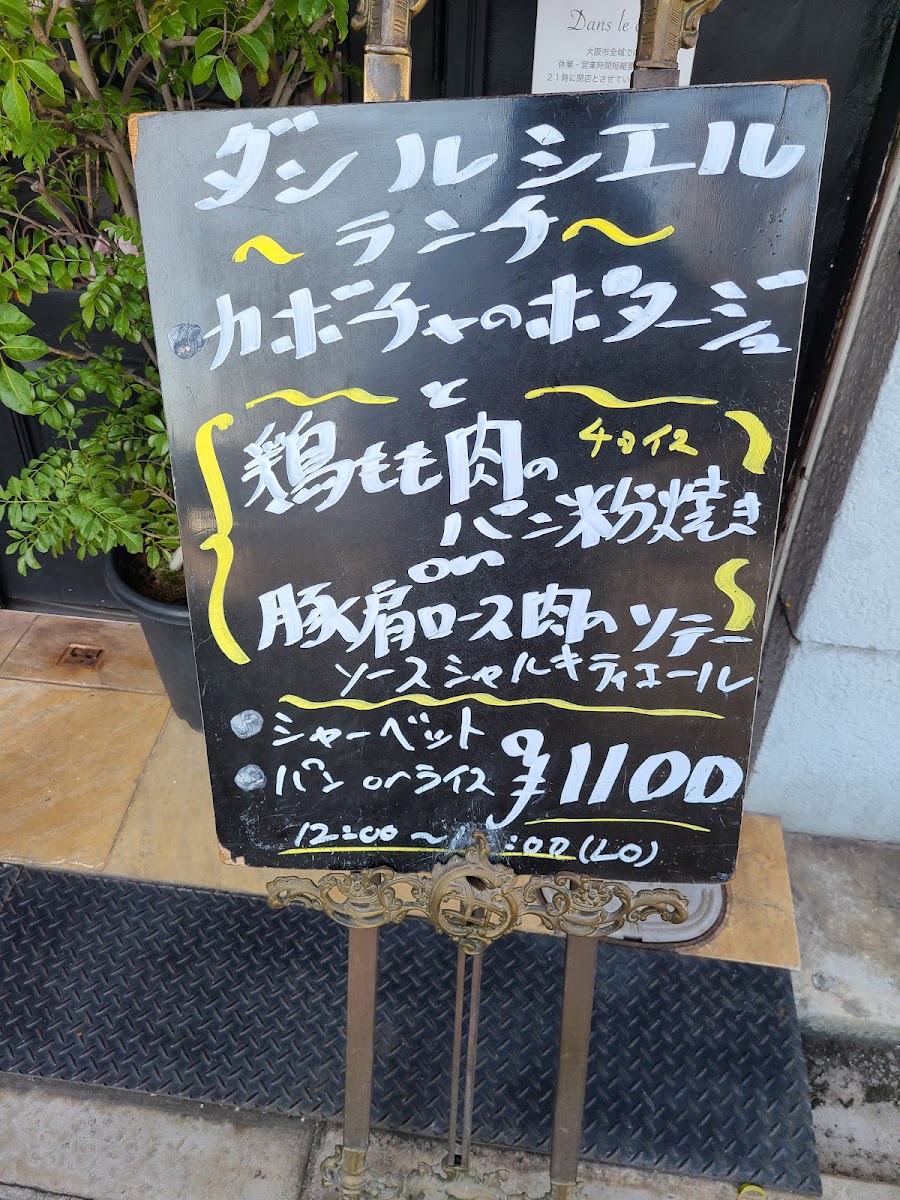 Dans le
大阪市全域で
休業・営業時間短縮
21時に閉店とさせてい
ダン ル シエル
～ランチ～
カボチャのポタージュ
と
チョイス
鶏もも肉の
パン粉焼き
or
豚肩ロース肉のソテー
ソースシャルキティエール
シャーベット
パン or ライス
¥1100
12:00 ～ :00 (LO)